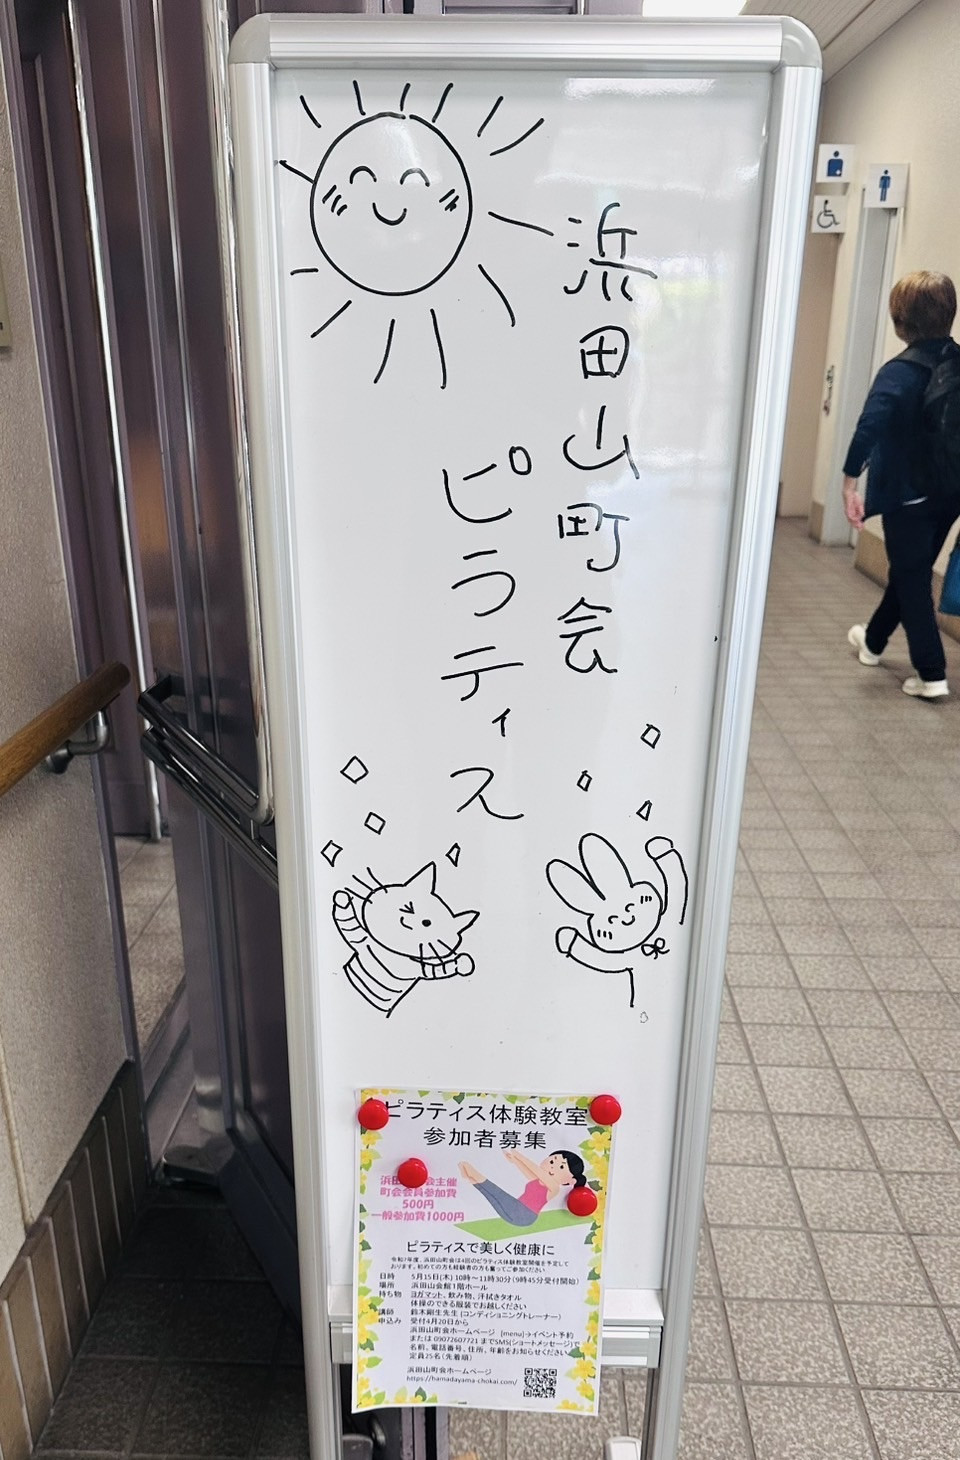 浜田山町会
ピラティス
ピラティス体験教室
参加者募集
浜田 会主催
町会会員参加費
500円
一般参加費1000円
ピラティスで美しく健康に
令和7年度、浜田山町会は4回のピラティス体験教室開催を予定して
おります。初めての方も経験者の方も奮ってご参加ください
日時 5月15日(木) 10時～11時30分(9時45分受付開始)
場所 浜田山会館1階ホール
持ち物 ヨガマット、飲み物、汗拭きタオル
体操のできる服装でお越しください
講師 鈴木嗣生先生 (コンディショニングトレーナー)
申込み 受付4月20日から
浜田山町会ホームページ [menu]→イベント予約
または 09072607721 までSMS(ショートメッセージ)で
名前、電話番号、住所、年齢をお知らせください
定員25名(先着順)
浜田山町会ホームページ
https://hamadayama-chokai.com/